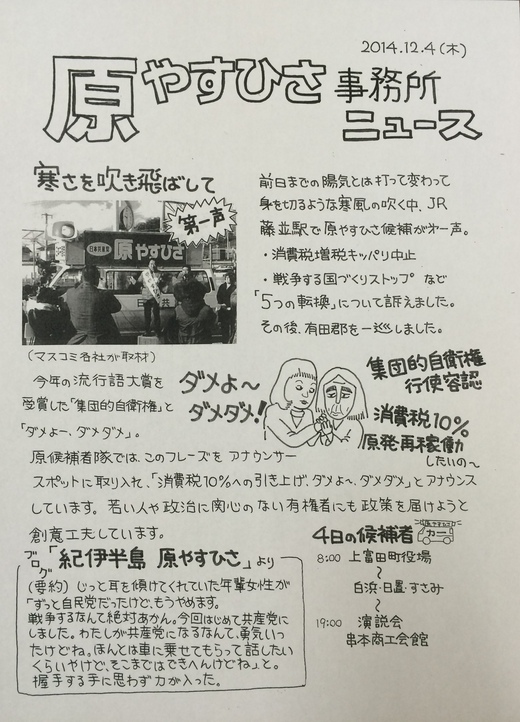 2014.12.4(木)
原やすひさ事務所ニュース
寒さを吹き飛ばして
第一声
原やすひさ
(マスコミ各社が取材)
前日までの陽気とは打って変わって
身を切るような寒風の吹く中、JR
藤並駅で原やすひさ候補が第一声。
・消費税増税キッパリ中止
・戦争する国づくりストップ など
「5つの転換」について訴えました。
その後、有田郡を一巡しました。
今年の流行語大賞を
受賞した「集団的自衛権」と
「ダメよ〜、ダメダメ」。
原候補者隊では、このフレーズを アナウンサー
スポットに取り入れ、「消費税10%への引き上げ、ダメよ〜、ダメダメ」とアナウンス
しています。若い人や政治に関心のない有権者にも政策を届けようと
創意工夫しています。
ダメよ〜
ダメダメ!
集団的自衛権
行使容認
消費税10%
原発再稼働
したいの〜
ブログ「紀伊半島 原やすひさ」より
(要約)じっと耳を傾けてくれていた年輩女性が
「ずっと自民党だったけど、もうやめます。
戦争するなんて絶対あかん。今回はじめて共産党に
しました。わたしが共産党になるなんて、勇気いっ
たけどね。ほんとは車に乗せてもらって話したい
くらいやけど、そこまではできへんけどね」と。
握手する手に思わず力が入った。
4日の候補者
カー
8:00 上富田町役場
〜
白浜・日置・すさみ
〜
19:00 演説会
串本商工会館